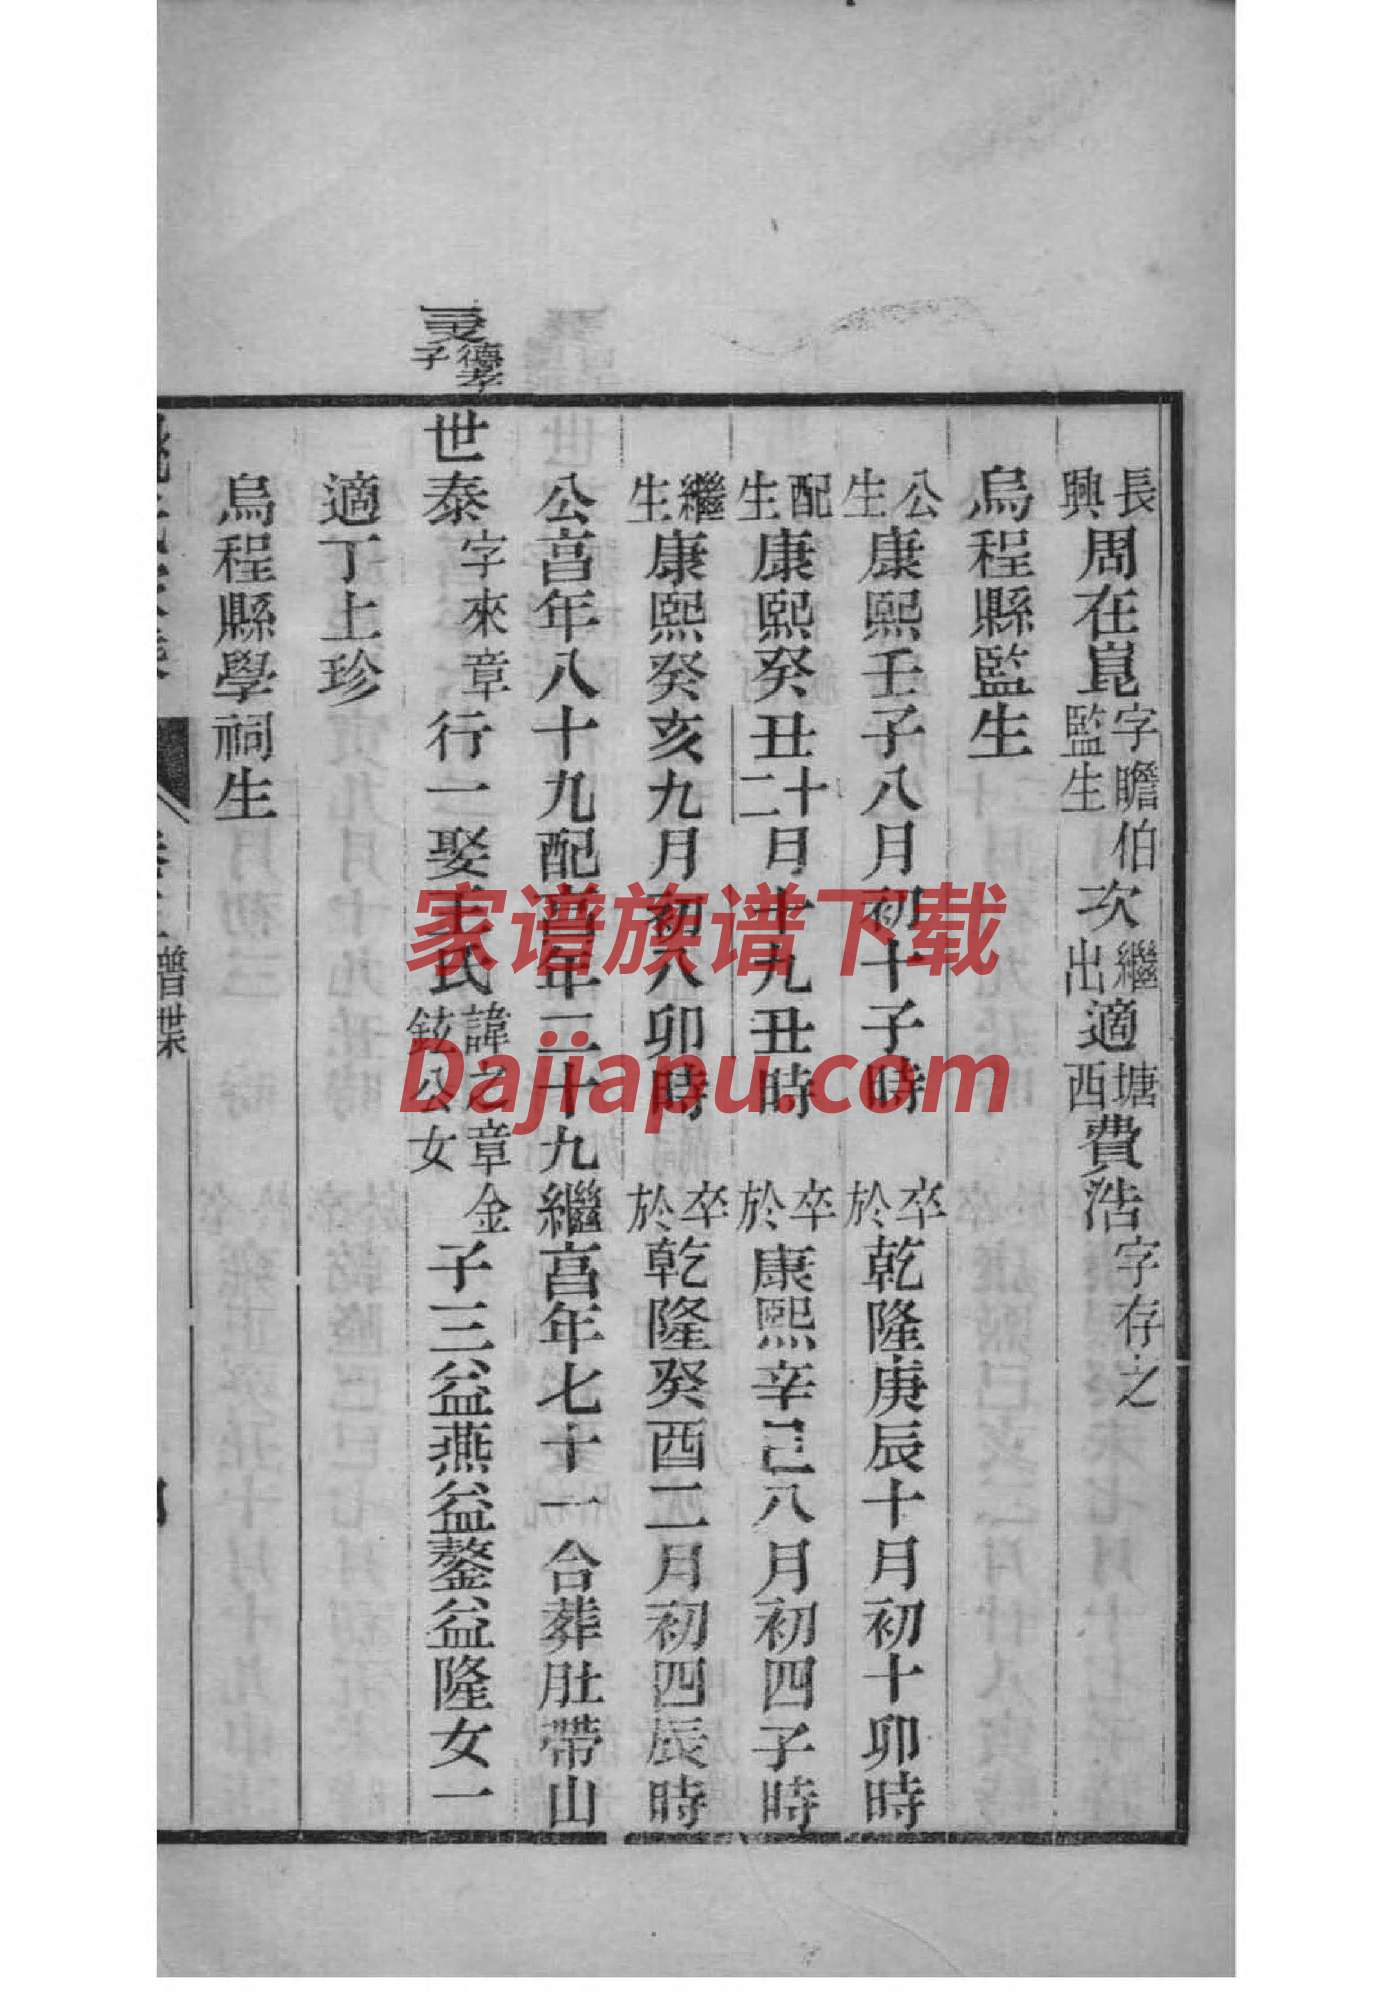 長興周在崑字瞻伯監生次繼出適塘西費浩字存之
烏程縣監生
公生康熙壬子八月初十子時 卒於乾隆庚辰十月初十卯時
配生康熙癸丑十二月十九丑時 卒於康熙辛巳八月初四子時
繼生康熙癸亥九月初八卯時 卒於乾隆癸酉二月初四辰時
公享年八十九配享年二十九繼享年七十一合葬肚帶山
德孝子
世泰字來章行一娶王氏諱之章鉉公女金子三益燕益鏊益隆女一
適丁上珍
烏程縣學祠生
譜世
家谱族谱下载
Dajiapu.com